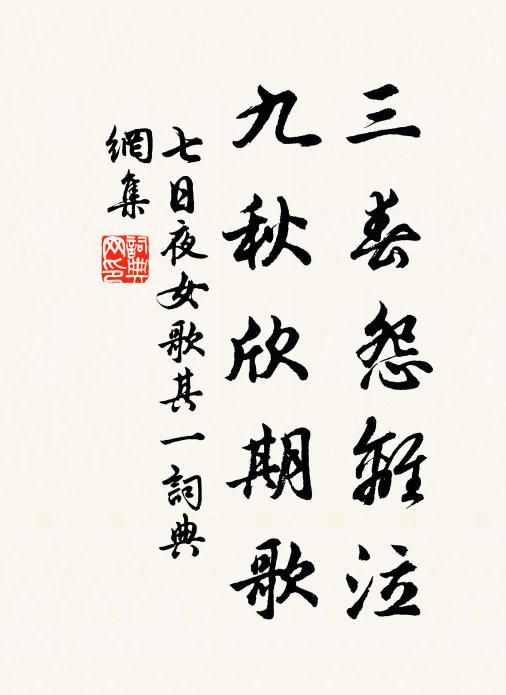 三春怨離泣
九秋欣期歌
七日夜女歌其一詞典
網集
詞典
网印